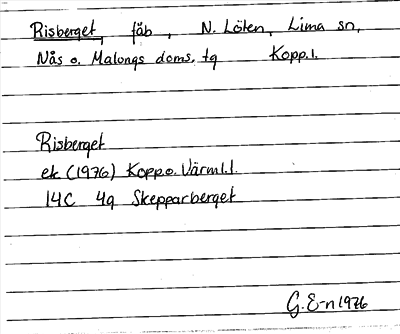 Risberget, fåb, N. Löten, Lima sn,
Nås o. Malungs doms. tg Kopp.l.
Risberget
ek (1976) Kopp.o. Värml.l.
14C 4g Skepparberget
G. E-n 1976